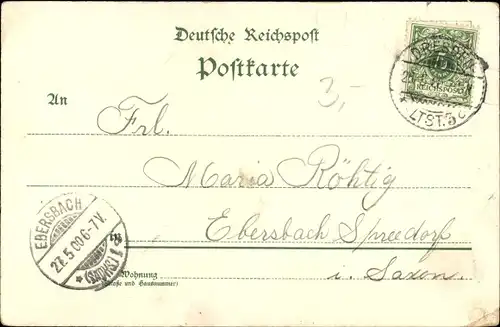 Deutsche Reichspost
Postkarte
DRESDEN
ALTST. 3
REICHSPOST
3,-
An
Frl.
Maria Röhtig
Ebersbach Spreedorf
in
i. Saxon.
EBERSBACH
27.5.00 6-7V.
(SACHS)
Wohnung
(Straße und Hausnummer)